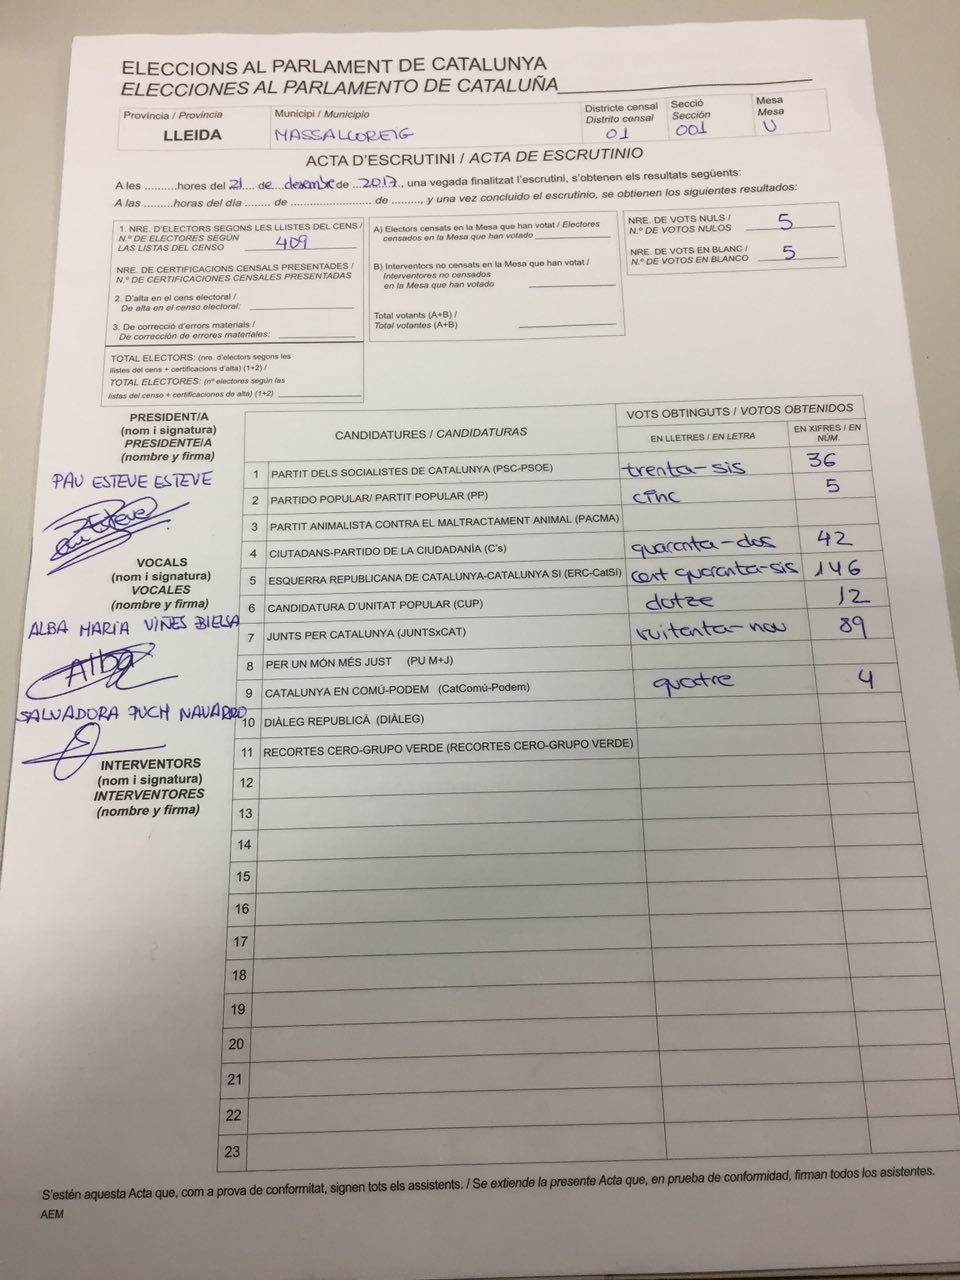 ELECCIONS AL PARLAMENT DE CATALUNYA
ELECCIONES AL PARLAMENTO DE CATALUÑA
Província / Provincia
LLEIDA
Municipi / Municipio
MASSALCOREIG
Districte censal
Distrito censal
01
Secció
Sección
001
Mesa
Mesa
U
ACTA D'ESCRUTINI / ACTA DE ESCRUTINIO
A les ..........hores del 21 .... de desembre de ..2017.., una vegada finalitzat l'escrutini, s'obtenen els resultats següents:
A las ..........horas del día ........ de ......................... de ........., y una vez concluido el escrutinio, se obtienen los siguientes resultados:
1. NRE. D'ELECTORS SEGONS LES LLISTES DEL CENS /
N.º DE ELECTORES SEGÚN
LAS LISTAS DEL CENSO 409
NRE. DE CERTIFICACIONS CENSALS PRESENTADES /
N.º DE CERTIFICACIONES CENSALES PRESENTADAS
2. D'alta en el cens electoral /
De alta en el censo electoral:
3. De correcció d'errors materials /
De corrección de errores materiales:
TOTAL ELECTORS: (nre. d'electors segons les
llistes del cens + certificacions d'alta) (1+2) /
TOTAL ELECTORES: (nº electores según las
listas del censo + certificaciones de alta) (1+2)
A) Electors censats en la Mesa que han votat / Electores
censados en la Mesa que han votado
B) Interventors no censats en la Mesa que han votat /
Interventores no censados
en la Mesa que han votado
Total votants (A+B) /
Total votantes (A+B)
NRE. DE VOTS NULS /
N.º DE VOTOS NULOS 5
NRE. DE VOTS EN BLANC /
N.º DE VOTOS EN BLANCO 5
PRESIDENT/A
(nom i signatura)
PRESIDENTE/A
(nombre y firma)
PAU ESTEVE ESTEVE
VOCALS
(nom i signatura)
VOCALES
(nombre y firma)
ALBA MARIA VIÑES BIELSA
Alba
SALVADORA PUCH NAVARRO
INTERVENTORS
(nom i signatura)
INTERVENTORES
(nombre y firma)
CANDIDATURES / CANDIDATURAS
VOTS OBTINGUTS / VOTOS OBTENIDOS
EN LLETRES / EN LETRA
EN XIFRES / EN NÚM.
1 PARTIT DELS SOCIALISTES DE CATALUNYA (PSC-PSOE) trenta-sis 36
2 PARTIDO POPULAR/ PARTIT POPULAR (PP) cinc 5
3 PARTIT ANIMALISTA CONTRA EL MALTRACTAMENT ANIMAL (PACMA)
4 CIUTADANS-PARTIDO DE LA CIUDADANÍA (C's) quaranta-dos 42
5 ESQUERRA REPUBLICANA DE CATALUNYA-CATALUNYA SI (ERC-CatSí) cent quaranta-sis 146
6 CANDIDATURA D'UNITAT POPULAR (CUP) dotze 12
7 JUNTS PER CATALUNYA (JUNTSxCAT) vuitanta-nou 89
8 PER UN MÓN MÉS JUST (PU M+J)
9 CATALUNYA EN COMÚ-PODEM (CatComú-Podem) quatre 4
10 DIÀLEG REPUBLICÀ (DIÀLEG)
11 RECORTES CERO-GRUPO VERDE (RECORTES CERO-GRUPO VERDE)
12
13
14
15
16
17
18
19
20
21
22
23
S'estén aquesta Acta que, com a prova de conformitat, signen tots els assistents. / Se extiende la presente Acta que, en prueba de conformidad, firman todos los asistentes.
AEM